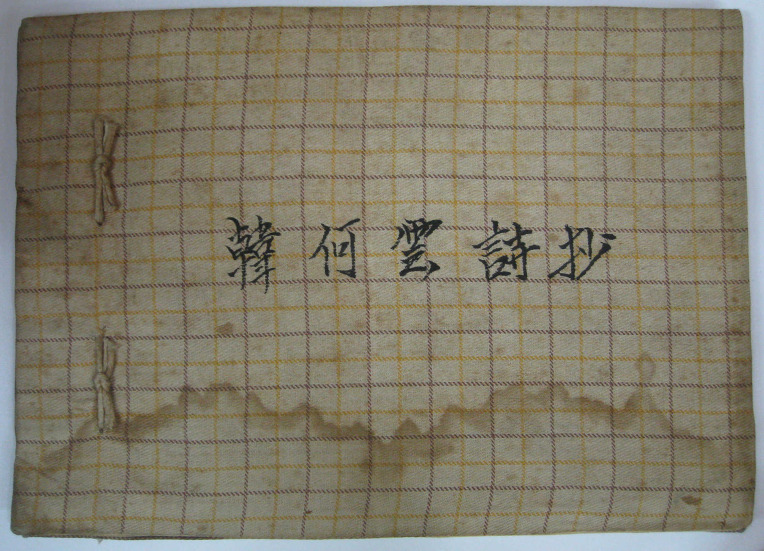 韓何雲詩抄